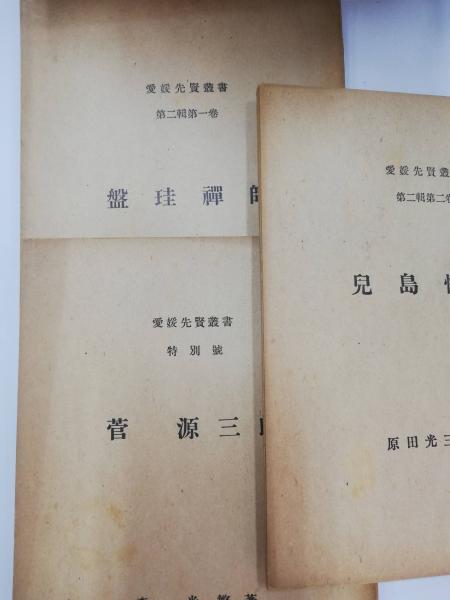 愛媛先賢叢書
第二輯第一卷
盤珪禪師
愛媛先賢叢書
特別號
菅源三
愛媛先賢叢
第二輯第二卷
兒島
原田光三